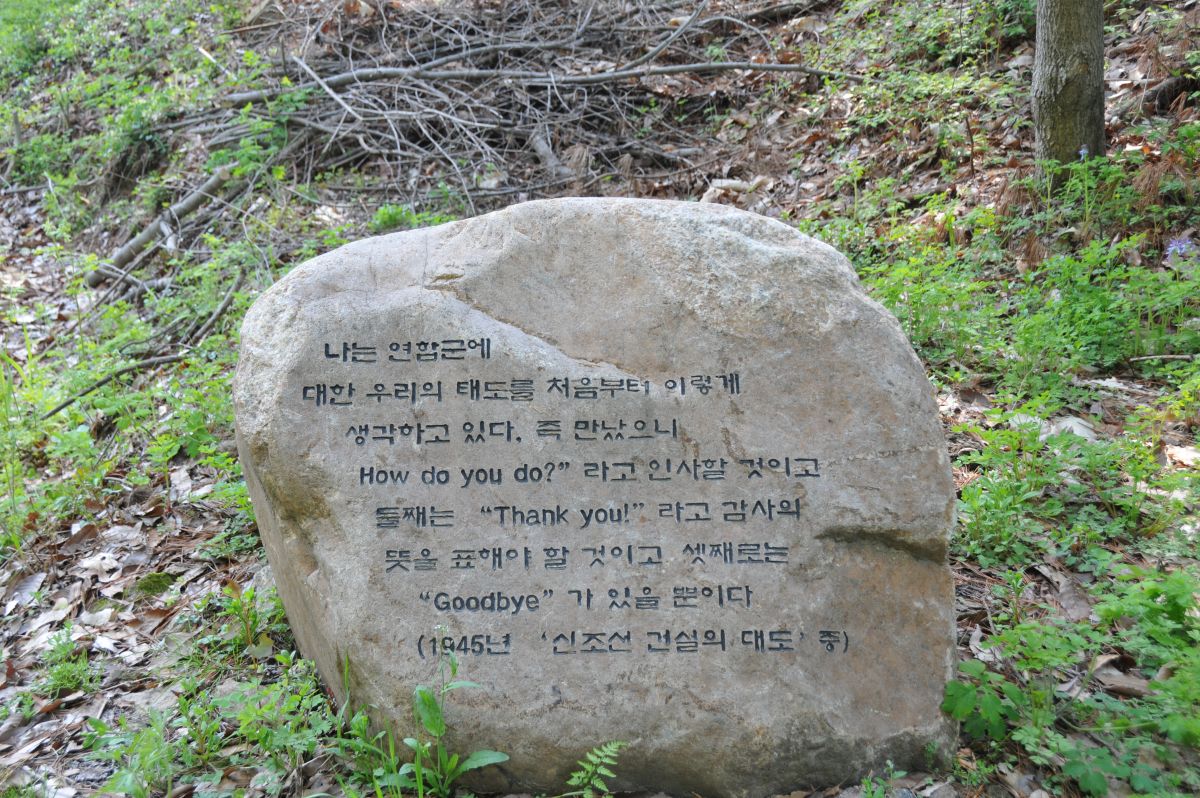 나는 연합군에
대한 우리의 태도를 처음부터 이렇게
생각하고 있다. 즉 만났으니
How do you do?” 라고 인사할 것이고
둘째는 “Thank you!” 라고 감사의
뜻을 표해야 할 것이고 셋째로는
“Goodbye” 가 있을 뿐이다
(1945년 ‘신조선 건설의 대도’ 중)